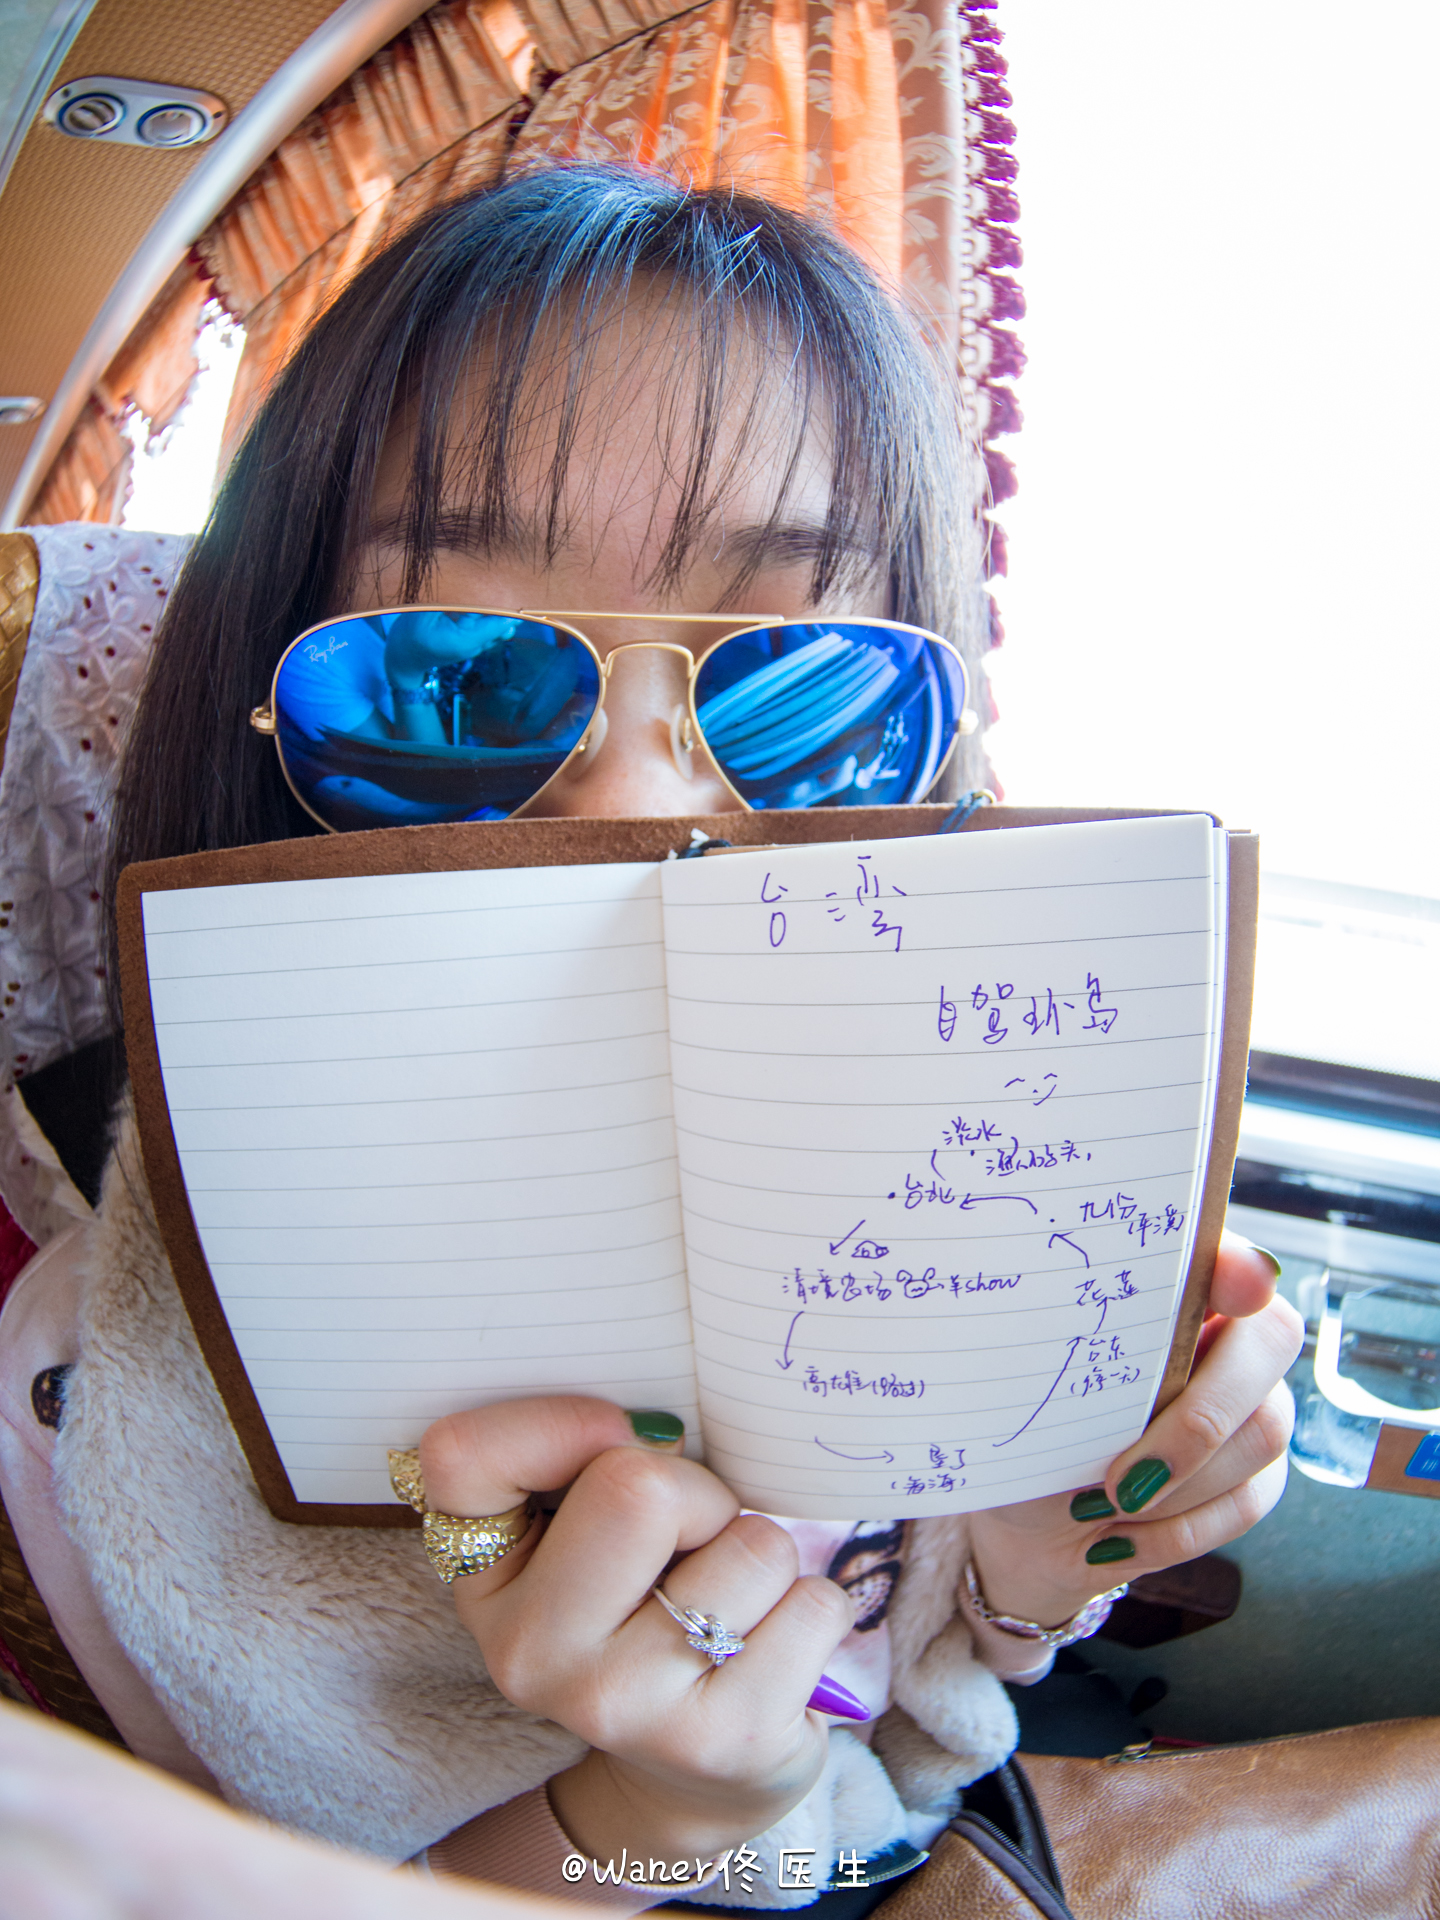 Ray-Ban
台湾
自驾环岛
淡水
渔人码头
台北
九份
(平溪)
清境农场 羊show
花莲
台东
高雄(路过)
(停一天)
垦丁
(看海)
@Waner佟医生